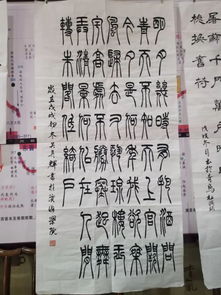 明月幾時有把酒問
青天不知天上宮闕
今夕是何年我欲乘
風歸去又恐瓊樓玉
宇高處不勝寒起舞
弄清影何似在人間
轉朱閣低綺戶
歲在戊戌初冬
桃換舊符